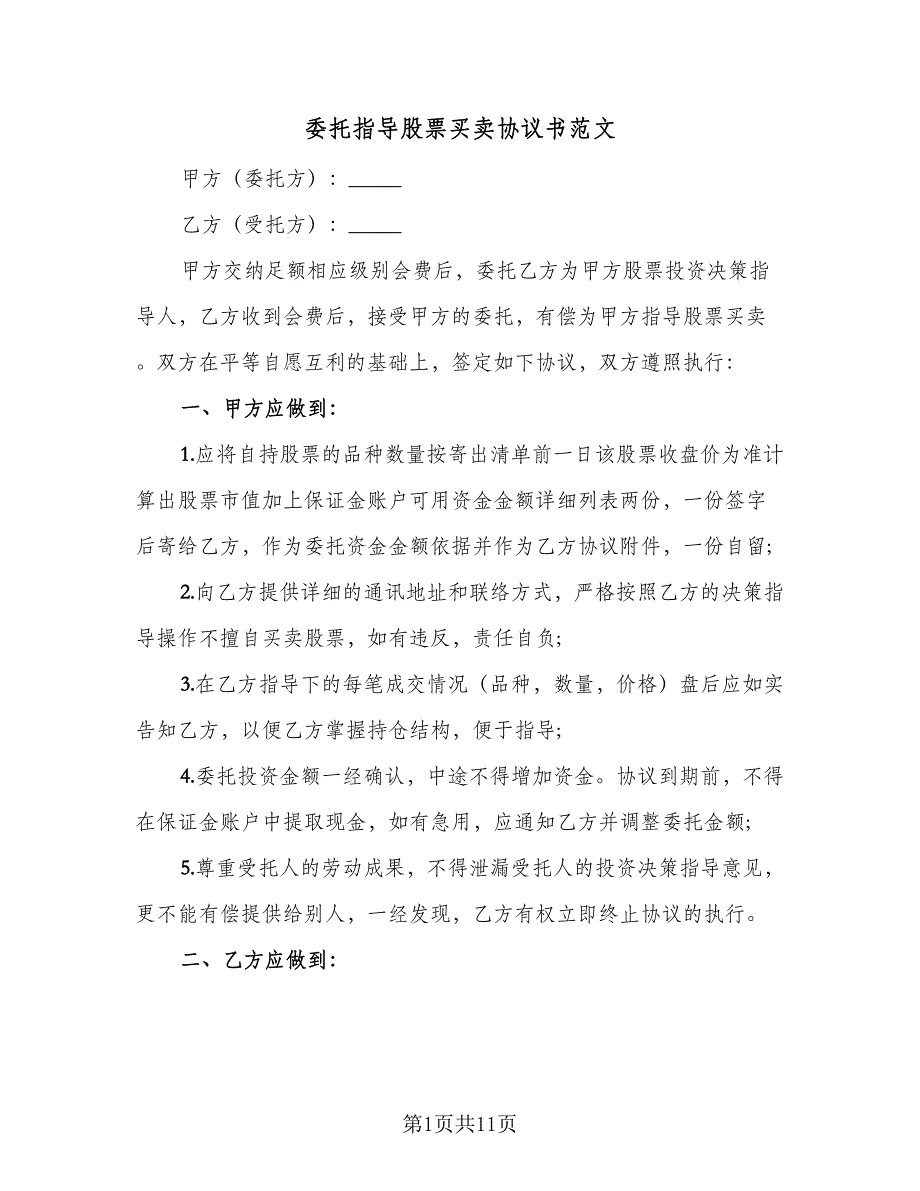 委托指导股票买卖协议书范文
甲方（委托方）：_____
乙方（受托方）：_____
甲方交纳足额相应级别会费后，委托乙方为甲方股票投资决策指
导人，乙方收到会费后，接受甲方的委托，有偿为甲方指导股票买卖
。双方在平等自愿互利的基础上，签定如下协议，双方遵照执行：
一、甲方应做到：
1.应将自持股票的品种数量按寄出清单前一日该股票收盘价为准计
算出股票市值加上保证金账户可用资金金额详细列表两份，一份签字
后寄给乙方，作为委托资金金额依据并作为乙方协议附件，一份自留；
2.向乙方提供详细的通讯地址和联络方式，严格按照乙方的决策指
导操作不擅自买卖股票，如有违反，责任自负；
3.在乙方指导下的每笔成交情况（品种，数量，价格）盘后应如实
告知乙方，以便乙方掌握持仓结构，便于指导；
4.委托投资金额一经确认，中途不得增加资金。协议到期前，不得
在保证金账户中提取现金，如有急用，应通知乙方并调整委托金额；
5.尊重受托人的劳动成果，不得泄漏受托人的投资决策指导意见，
更不能有偿提供给别人，一经发现，乙方有权立即终止协议的执行。
二、乙方应做到：
第1页共11页